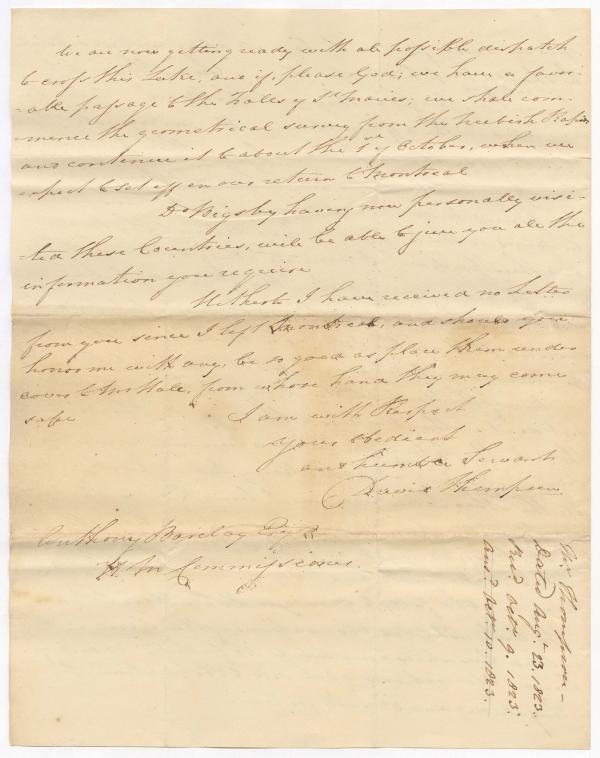 We are now getting ready with all possible dispatch
to cross this Lake, and if, please God; we have a favor-
-able passage to the Falles of St Maries; we shall com-
-mence the geometrical survey from the Neebish Rapids
and continue it to about the 1st of October, when we
expect to set off on our return to Montreal
Dr Bigsby having now personally visi-
-ted these Countries, will be able to give you all the
information you require
Hitherto I have received no Letter
from you since I left Montreal, and should you
honor me with any, be so good as place them under
cover to Mr Hale, from whose hand they may come
safe
I am with Respect
your obedient
and humble Servant
David Thompson
Anthony Barclay Esqr
H. M Commissioner.
Mr. Thompson -
Dated Augt. 23. 1823.
Recd. Octr. 9. 1823.
Ansd. Octr. 10. 1823.